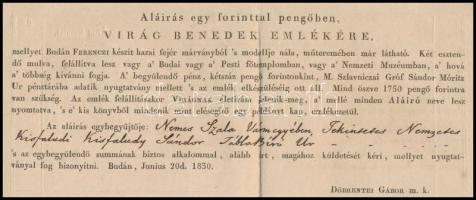 Aláirás egy forinttal pengőben,
VIRÁG BENEDEK EMLÉKÉRE,
mellyet Budán FERENCZI készit hazai fejér márványból 's modellje nála, műteremében már látható. Két eszten-
dő mulva, felállitva lesz vagy a' Budai vagy a' Pesti főtemplomban, vagy a' Nemzeti Muzéumban, a' hová
a' többség kivánni fogja. A' begyülendő pénz, kétszáz pengő forintonkint, M. Szlavniczai Gróf Sándor Móritz
Ur pénztárába adatik nyugtatvány mellett 's az emlék elkészüléséig ott áll. Mind össze 1750 pengő forintra
van szükség. Az emlék felállitásakor VIRÁGNAK életirása jelenik-meg, 's a' mellé minden Aláiró neve lesz
nyomtatva, 's e' kis könyvből mindenik mint eléseged egy példányt kap, emlékezetül.
Az aláirás egybegyűjtője: Nemes Szala Vármegyében, Tekintetes Nemzetes
Kisfaludi Kisfaludy Sándor TáblaBiró Ur
's az egybegyülendő summának biztos alkalommal, alább irt, magához küldetését kéri, mellyet nyugtat-
ványal fog bizonyitni. Budán, Junius 20d. 1830.
DÖBRENTEI GÁBOR m. k.